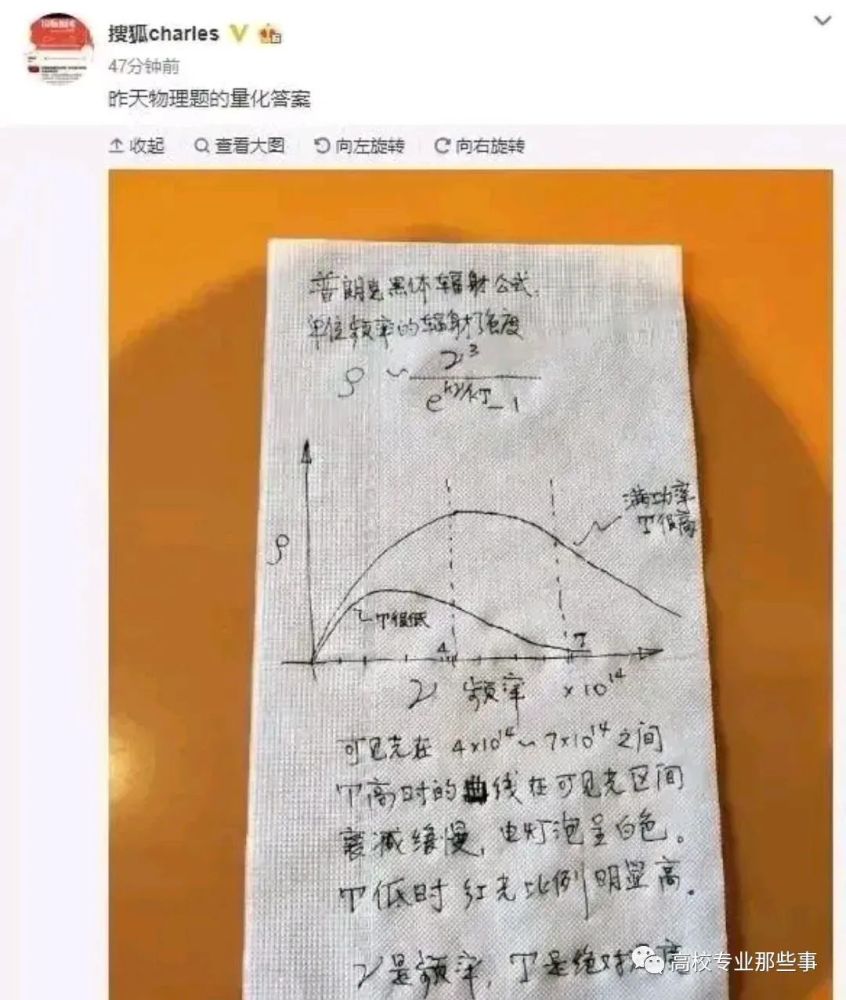 搜狐charles
47分钟前
昨天物理题的量化答案
收起 查看大图 向左旋转 向右旋转
普朗克黑体辐射公式.
单位频率的辐射强度
ρ ~ ν³/(e^hν/kT-1)
满功率
T很高
ρ
T很低
4 7
ν 频率 ×10¹⁴
可见光在 4×10¹⁴~7×10¹⁴之间
T高时的曲线在可见光区间
衰减缓慢,电灯泡呈白色。
T低时红光比例明显高.
ν是频率,T是绝对温度
高校专业那些事